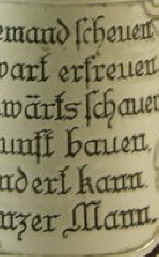 emand scheuen
wart erfreuen
wärts schauen
unft bauen,
ndert kann.
nzer Mann.